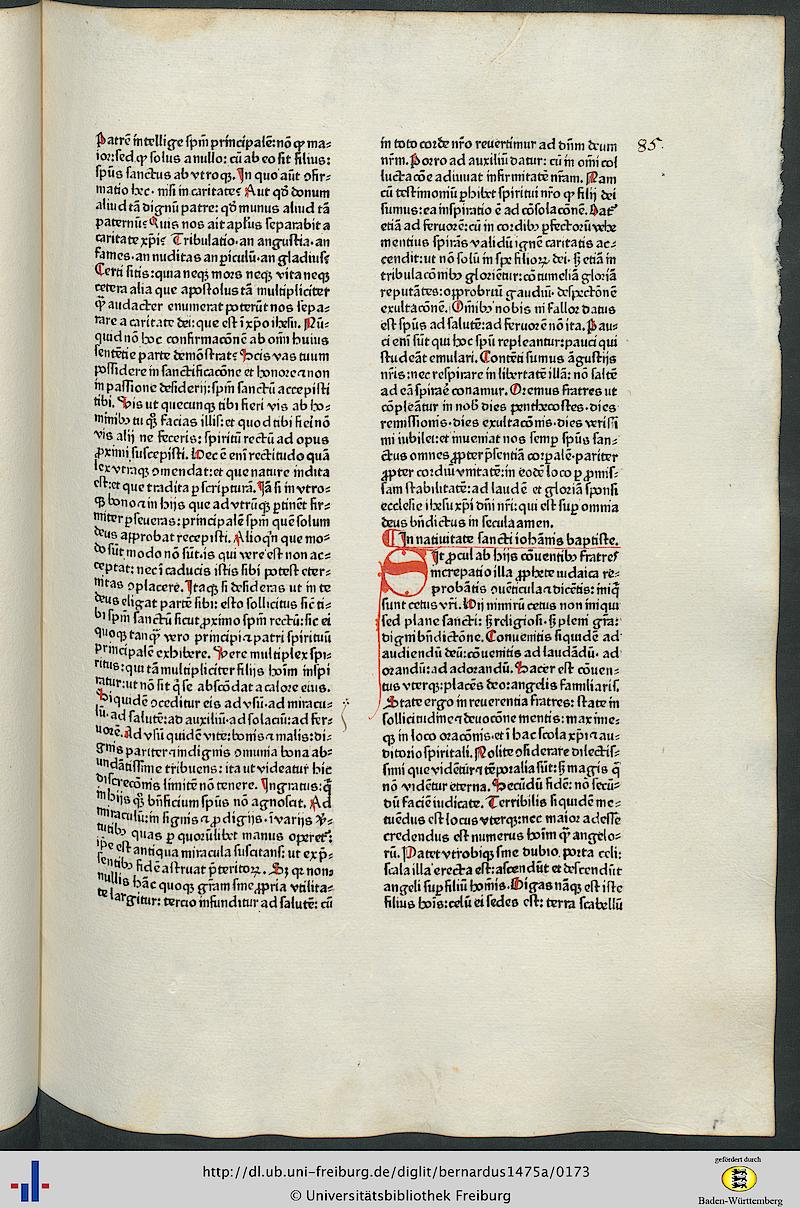 Patrē intellige spm̄ principalē: nō ꝙ ma⸗
ior: sed ꝙ solus a nullo: cū ab eo sit filius:
spūs sanctus ab vtroqꝫ. In quo aūt ꝯfir⸗
matio hec. nisi in caritate? Aut qd̄ donum
aliud tā dignū patre: qd̄ munus aliud tā
paternū? Quis nos ait apl̄us separabit a
caritate xp̄i? Tribulatio. an angustia. an
fames. an nuditas an periculū. an gladius?
Certi sitis: quia neqꝫ mors neqꝫ vita neqꝫ
cetera alia que apostolus tā multipliciter
audacter enumerat poterūt nos sepa⸗
rare a caritate dei: que est ī xp̄o ihesu. Nū⸗
quid nō hoc confirmacōnē ab om̄i huius
sentētie parte demōstrat? Scis vas tuum
possidere in sanctificacōne et honore ⁊ non
in passione desiderij: spm̄ sanctū accepisti
tibi. Vis ut quecunqꝫ tibi fieri vis ab ho⸗
minibꝰ tu facias illis: et quod tibi fieri nō
vis alij ne feceris: spiritū rectū ad opus
ꝓximi suscepisti. Hec ē enī rectitudo quā
lex vtraqꝫ ꝯmendat: et que nature indita
est: et que tradita ꝑ scripturā. Iā si in vtro⸗
qꝫ bono ⁊ in hijs que ad vtrūqꝫ ꝑtinēt fir⸗
miter ꝑseueras: principalē spm̄ quē solum
deus approbat recepisti. Alioqn̄ que mo⸗
do sūt modo nō sūt. is qui vere est non ac⸗
ceptat: nec ī caducis istis sibi potest eter⸗
nitas ꝯplacere. Itaqꝫ si desideras ut in te
deus eligat partē sibi: esto sollicitus sic̄ ti⸗
bi spm̄ sanctū sicut ꝓximo spm̄ rectū: sic ei
quoqꝫ tanqꝫ vero principi ⁊ patri spirituū
principalē exhibere. Vere multiplex spi⸗
ritus: qui tā multipliciter filijs hoīm inspi
ratur: ut nō sit qͥ se abscōdat a calore eius.
Siquidē ꝯceditur eis ad vsū. ad miracu⸗
lū. ad salutē: ad auxiliū. ad solaciū: ad fer⸗
uorē. Ad vsū quidē vite: bonis ⁊ malis: di⸗
gnis pariter ⁊ indignis omnia bona ab⸗
undātissime tribuens: ita ut videatur hic
discrecōnis limitē nō tenere. Ingratus: qͥ
in hijs qꝫ bn̄ficium spūs nō agnoscit. Ad
miraculū: in signis ⁊ ꝓdigijs. ī varijs v̄⸗
tutibꝰ quas ꝑ quorūlibet manus operet̄:
ip̄e est antiqua miracula suscitans: ut ex p̄⸗
sentibꝰ fidē astruat p̄teritoꝝ. Sꝫ qꝛ non⸗
nullis hāc quoqꝫ grām sine ꝓpria vtilita⸗
te largitur: tercio infunditur ad salutē: cū
in toto corde nr̄o reuertimur ad dn̄m deum
nr̄m. Porro ad auxiliū datur: cū in om̄i col
luctacōe adiuuat infirmitatē nr̄am. Nam
cū testimoniū ꝑhibet spiritui nr̄o ꝙ filij dei
sumus: ea inspiratio ē ad cōsolacōnē. Dat̄
etiā ad feruorē: cū in cordibꝰ ꝑfectorū vehe
mentius spirās validū ignē caritatis ac⸗
cendit: ut nō solū in spe filioꝝ dei. sꝫ etiā in
tribulacōnibꝰ gloriētur: cōtumeliā gloriā
reputātes: opprobriū gaudiū. despectōnē
exultacōnē. Omībꝰ nobis ni fallor datus
est spūs ad salutē: ad feruorē nō ita. Pau⸗
ci enī sūt qui hoc spū repleantur: pauci qui
studeāt emulari. Contēti sumus āgustijs
nr̄is: nec respirare in libertatē illā: nō saltē
ad eā spirare conamur. Oremus fratres ut
cōpleātur in nob̄ dies penthecostes. dies
remissionis. dies exultacōnis. dies verissi
mi iubilei: et inueniat nos semꝑ spūs san⸗
ctus omnes ꝓpter p̄sentiā corꝑalē. pariter
ꝓpter cordiū vnitatē: in eodē loco ꝓ ꝓmis⸗
sam stabilitatē: ad laudē et gloriā sponsi
ecclesie ihesu xp̄i dn̄i nr̄i: qui est suꝑ omnia
deus bn̄dictus in secula amen.
In natiuitate sancti iohānis baptiste.
Sit ꝓcul ab hijs cōuentibꝰ fratres
increpatio illa ꝓphete iudaica re⸗
probātis ꝯuēticula ⁊ dicētis: iniqͥ
sunt cetus vr̄i. Nij nimirū cetus non iniqui
sed plane sancti: sꝫ religiosi. sꝫ pleni grā:
digni bn̄dictōne. Conuenitis siquidē ad
audiendū deū: cōuenitis ad laudādū. ad
orandū: ad adorandū. Sacer est cōuen⸗
tus vterqꝫ: placēs deo: angelis familiaris.
State ergo in reuerentia fratres: state in
sollicitudine ⁊ deuocōne mentis: maxime⸗
qꝫ in loco oracōnis. et ī hac scola xp̄i ⁊ au⸗
ditorio spiritali. Nolite ꝯsiderare dilectis⸗
simi que vidētur ⁊ tēporalia sūt: sꝫ magis q̄
nō vidētur eterna. Secūdū fidē: nō secū⸗
dū faciē iudicate. Terribilis siquidē me⸗
tuēdus est locus vterqꝫ: nec maior adesse
credendus est numerus hoīm qꝫ angelo⸗
rū. Patet vtrobiqꝫ sine dubio porta celi:
scala illa erecta est: ascendūt et descendūt
angeli suꝑ filiū homīs. Gigas nāqꝫ est iste
filius hoīs: celū ei sedes est: terra scabellū
85.
http://dl.ub.uni-freiburg.de/diglit/bernardus1475a/0173
© Universitätsbibliothek Freiburg
gefördert durch
Baden-Württemberg